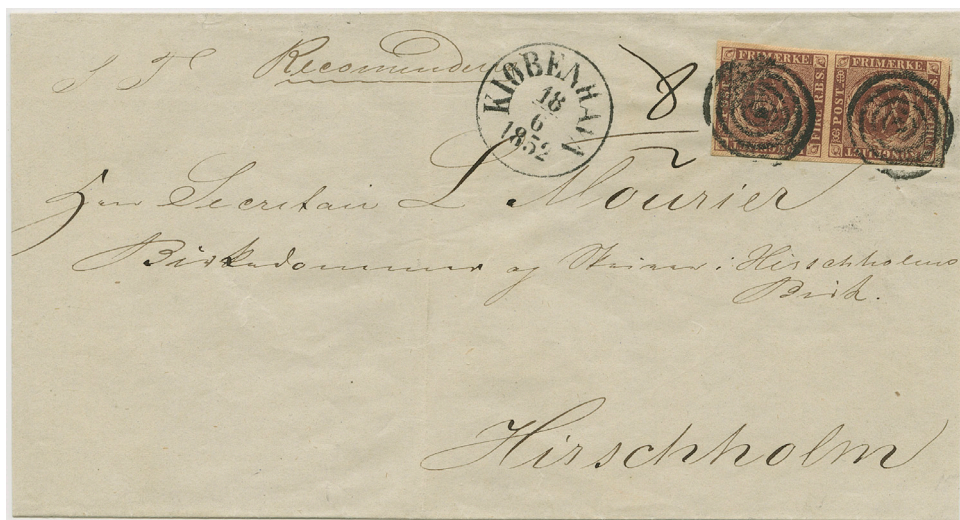 S T Recomenderet
KIØBENHAVN
18
6
1852
8
2
FRIMÆRKE
FIRE R.B.S.
FRIMÆRKE
POST
Herr Secretair L Mourier
Birkedommer og Skriver i Hirschholms
Birk.
Hirschholm